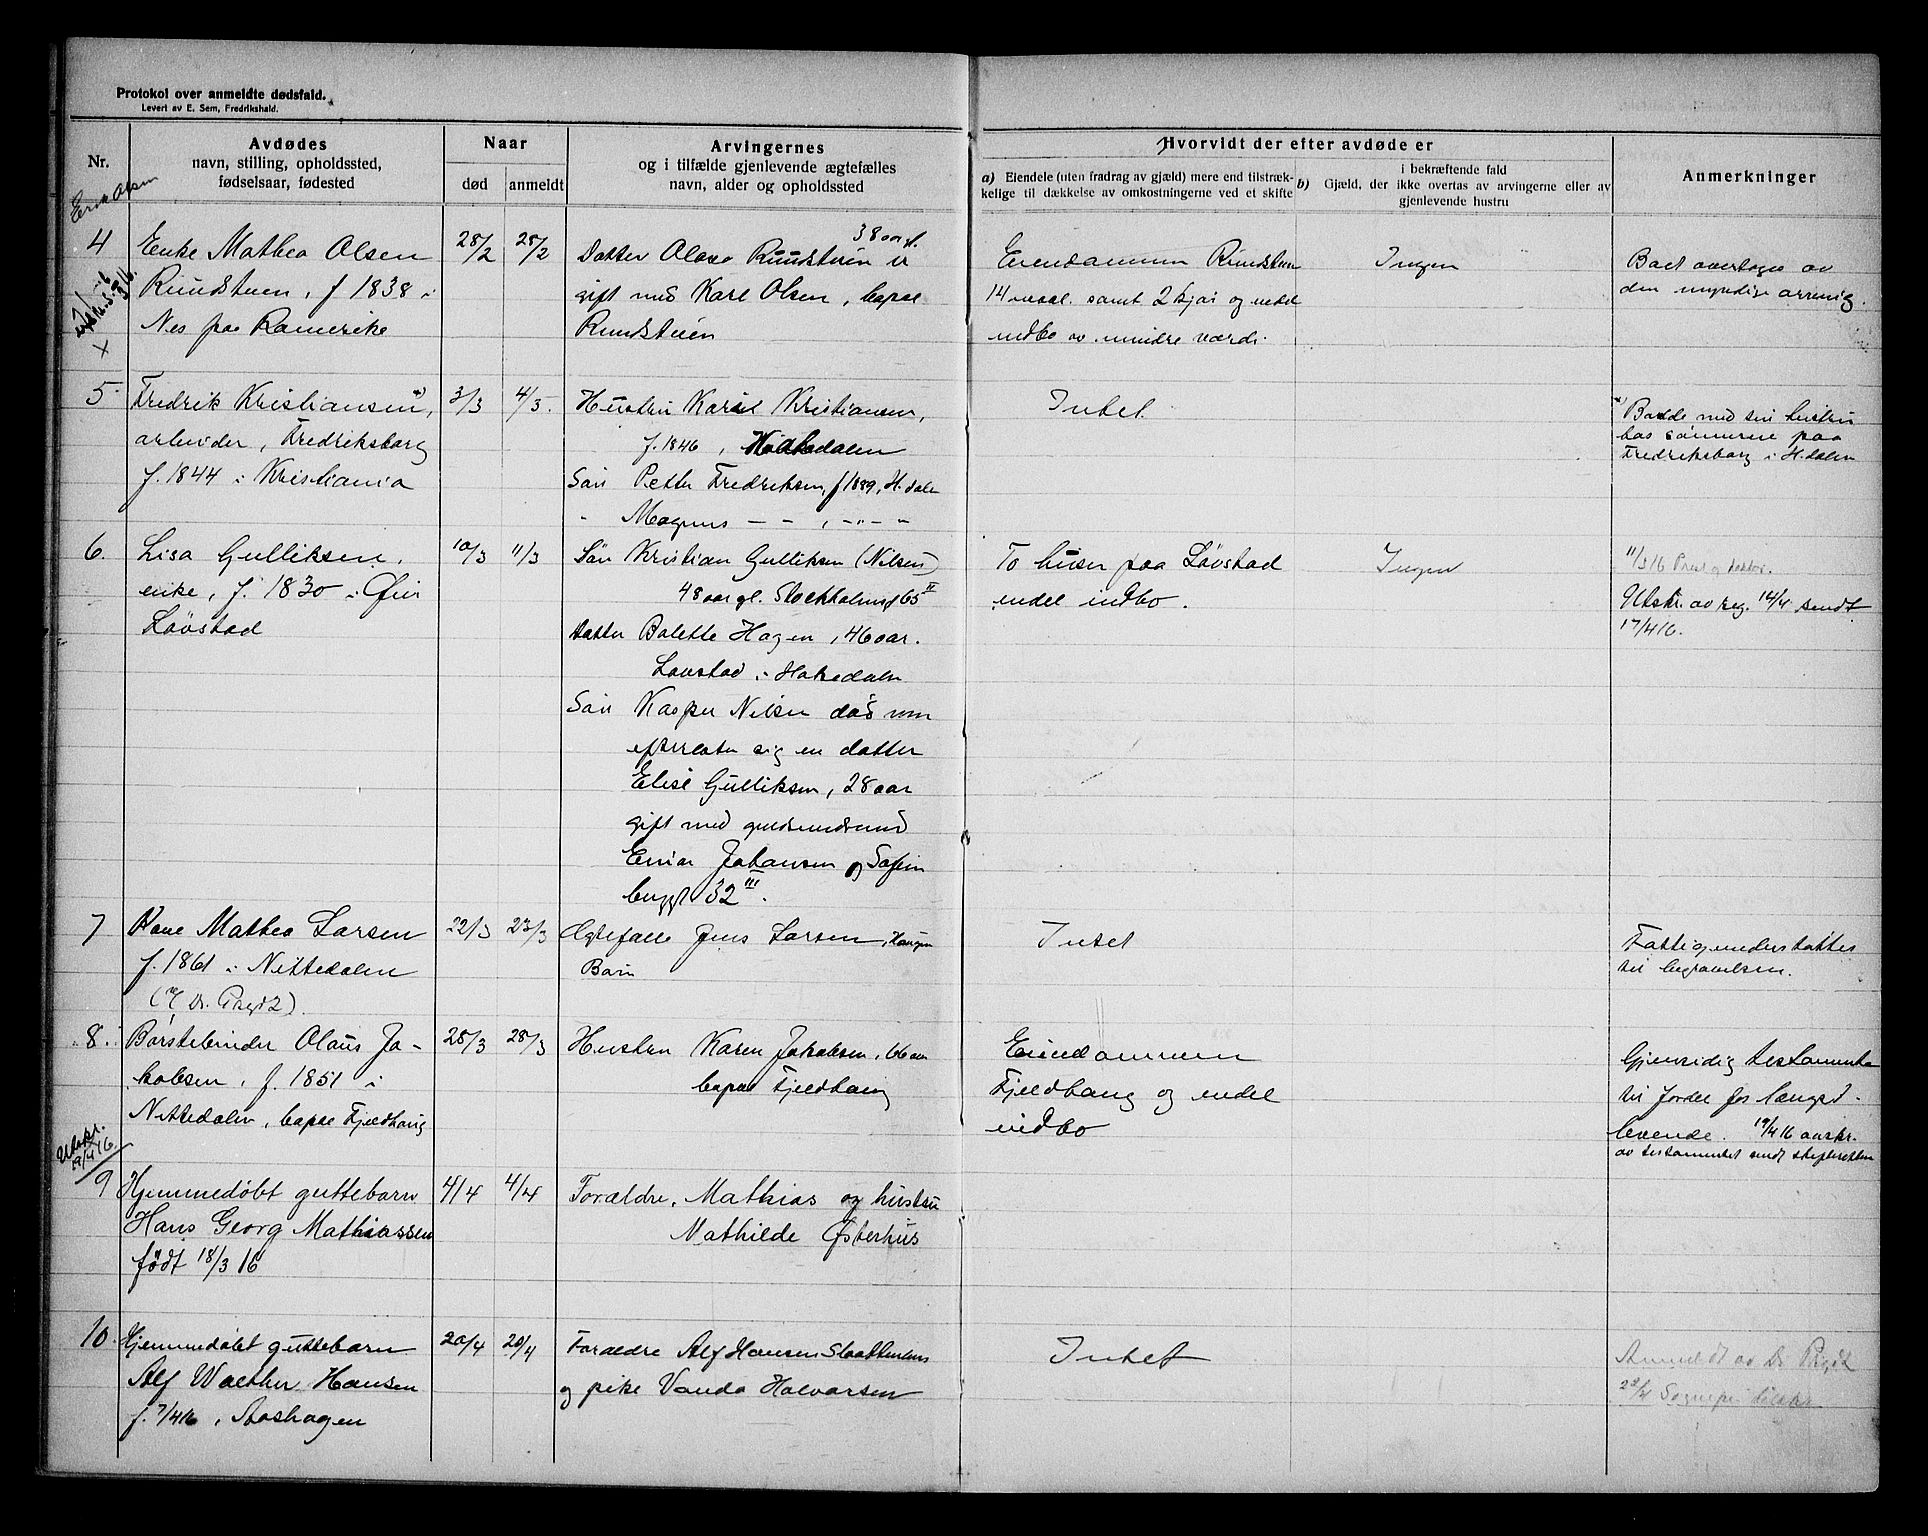 Protokol over anmeldte dødsfald.
Levert av E. Sem, Fredrikshald.
Nr.
Avdødes
navn, stilling, opholdssted,
fødselsaar, fødested
Naar
død
anmeldt
Arvingernes
og i tilfælde gjenlevende ægtefælles
navn, alder og opholdssted
Hvorvidt der efter avdøde er
a) Eiendele (uten fradrag av gjæld) mere end tilstræk-
kelige til dækkelse av omkostningerne ved et skifte
b) i bekræftende fald
Gjæld, der ikke overtas av arvingerne eller av
gjenlevende hustru
Anmerkninger
4
Enke Mathea Olsen
Ruudstuen, f 1838 i
Nes paa Romerike
28/2
28/2
38 aar gl.
Datter Olava Ruudstuen er
gift med Karl Olsen, bopæl
Ruudstuen
Eiendommen Ruudstuen
14 maal samt 2 kjør og endel
indbo av mindre værdi.
Ingen
Boet overtages av
den myndige arving.
5
Fredrik Kristiansen *),
arbeider, Fredriksborg
f. 1844 i Kristiania
3/3
4/3.
Hustru Karen Kristiansen,
f. 1846, Hakedalen
Søn Petter Fredriksen, f 1889, H.dalen
" Magnus — — , —"— "
Intet
*) Bodde med sin hustru
hos sønnerne paa
Fredriksborg i H.dalen
6.
Lisa Gulliksen,
enke, f. 1830 i
Løvstad
10/3
11/3
Søn Kristian Gulliksen (Nilsen)
48 aar gl. Stockholmsg 65 II
Datter Bolette Hagen, 46 aar.
Løvstad i Hakedalen
Søn Kasper Nilsen død som
efterlater sig en datter
Elise Gulliksen, 28 aar
gift med guldsmedsvend
Einar Johansen og Sofien
berggt 32 III.
To huser paa Løvstad
endel indbo.
Ingen
11/3 16 Prest og doktor.
Utskr. av reg. 14/4 sendt
17/4 16.
7
Kone Mathea Larsen
f. 1861 i Nittedalen
(v/ Dr. Pihl)
22/3
23/3
Ægtefælle Jens Larsen, Haugen
Barn
Intet
Fattigunderstøttes
til begravelsen.
8.
Børstebinder Olaus Ja-
kobsen, f. 1851 i
Nittedalen, bopæl Fjeldhaug
28/3
28/3
Hustru Karen Jakobsen, 66 aar
bopæl Fjeldhaug
Eiendommen
Fjeldhaug og endel
indbo
Gjensidig testamente
til fordel for længst-
levende. 19/4 16 avskr.
av testamentet sendt skifteretten
Utskr.
19/4 16.
9
Hjemmedøbt guttebarn
Hans Georg Mathiassen
født 18/3 16
4/4
4/4
Forældre, Mathias og hustru
Mathilde Østerhus
10.
Hjemmedøbt guttebarn
Alf Walther Hansen
f. 7/4 16, Aashagen
20/4
20/4
Forældre Alf Hansen Slaattmoen
og pike Vanda Halvorsen
Intet
Anmeldt av Dr.